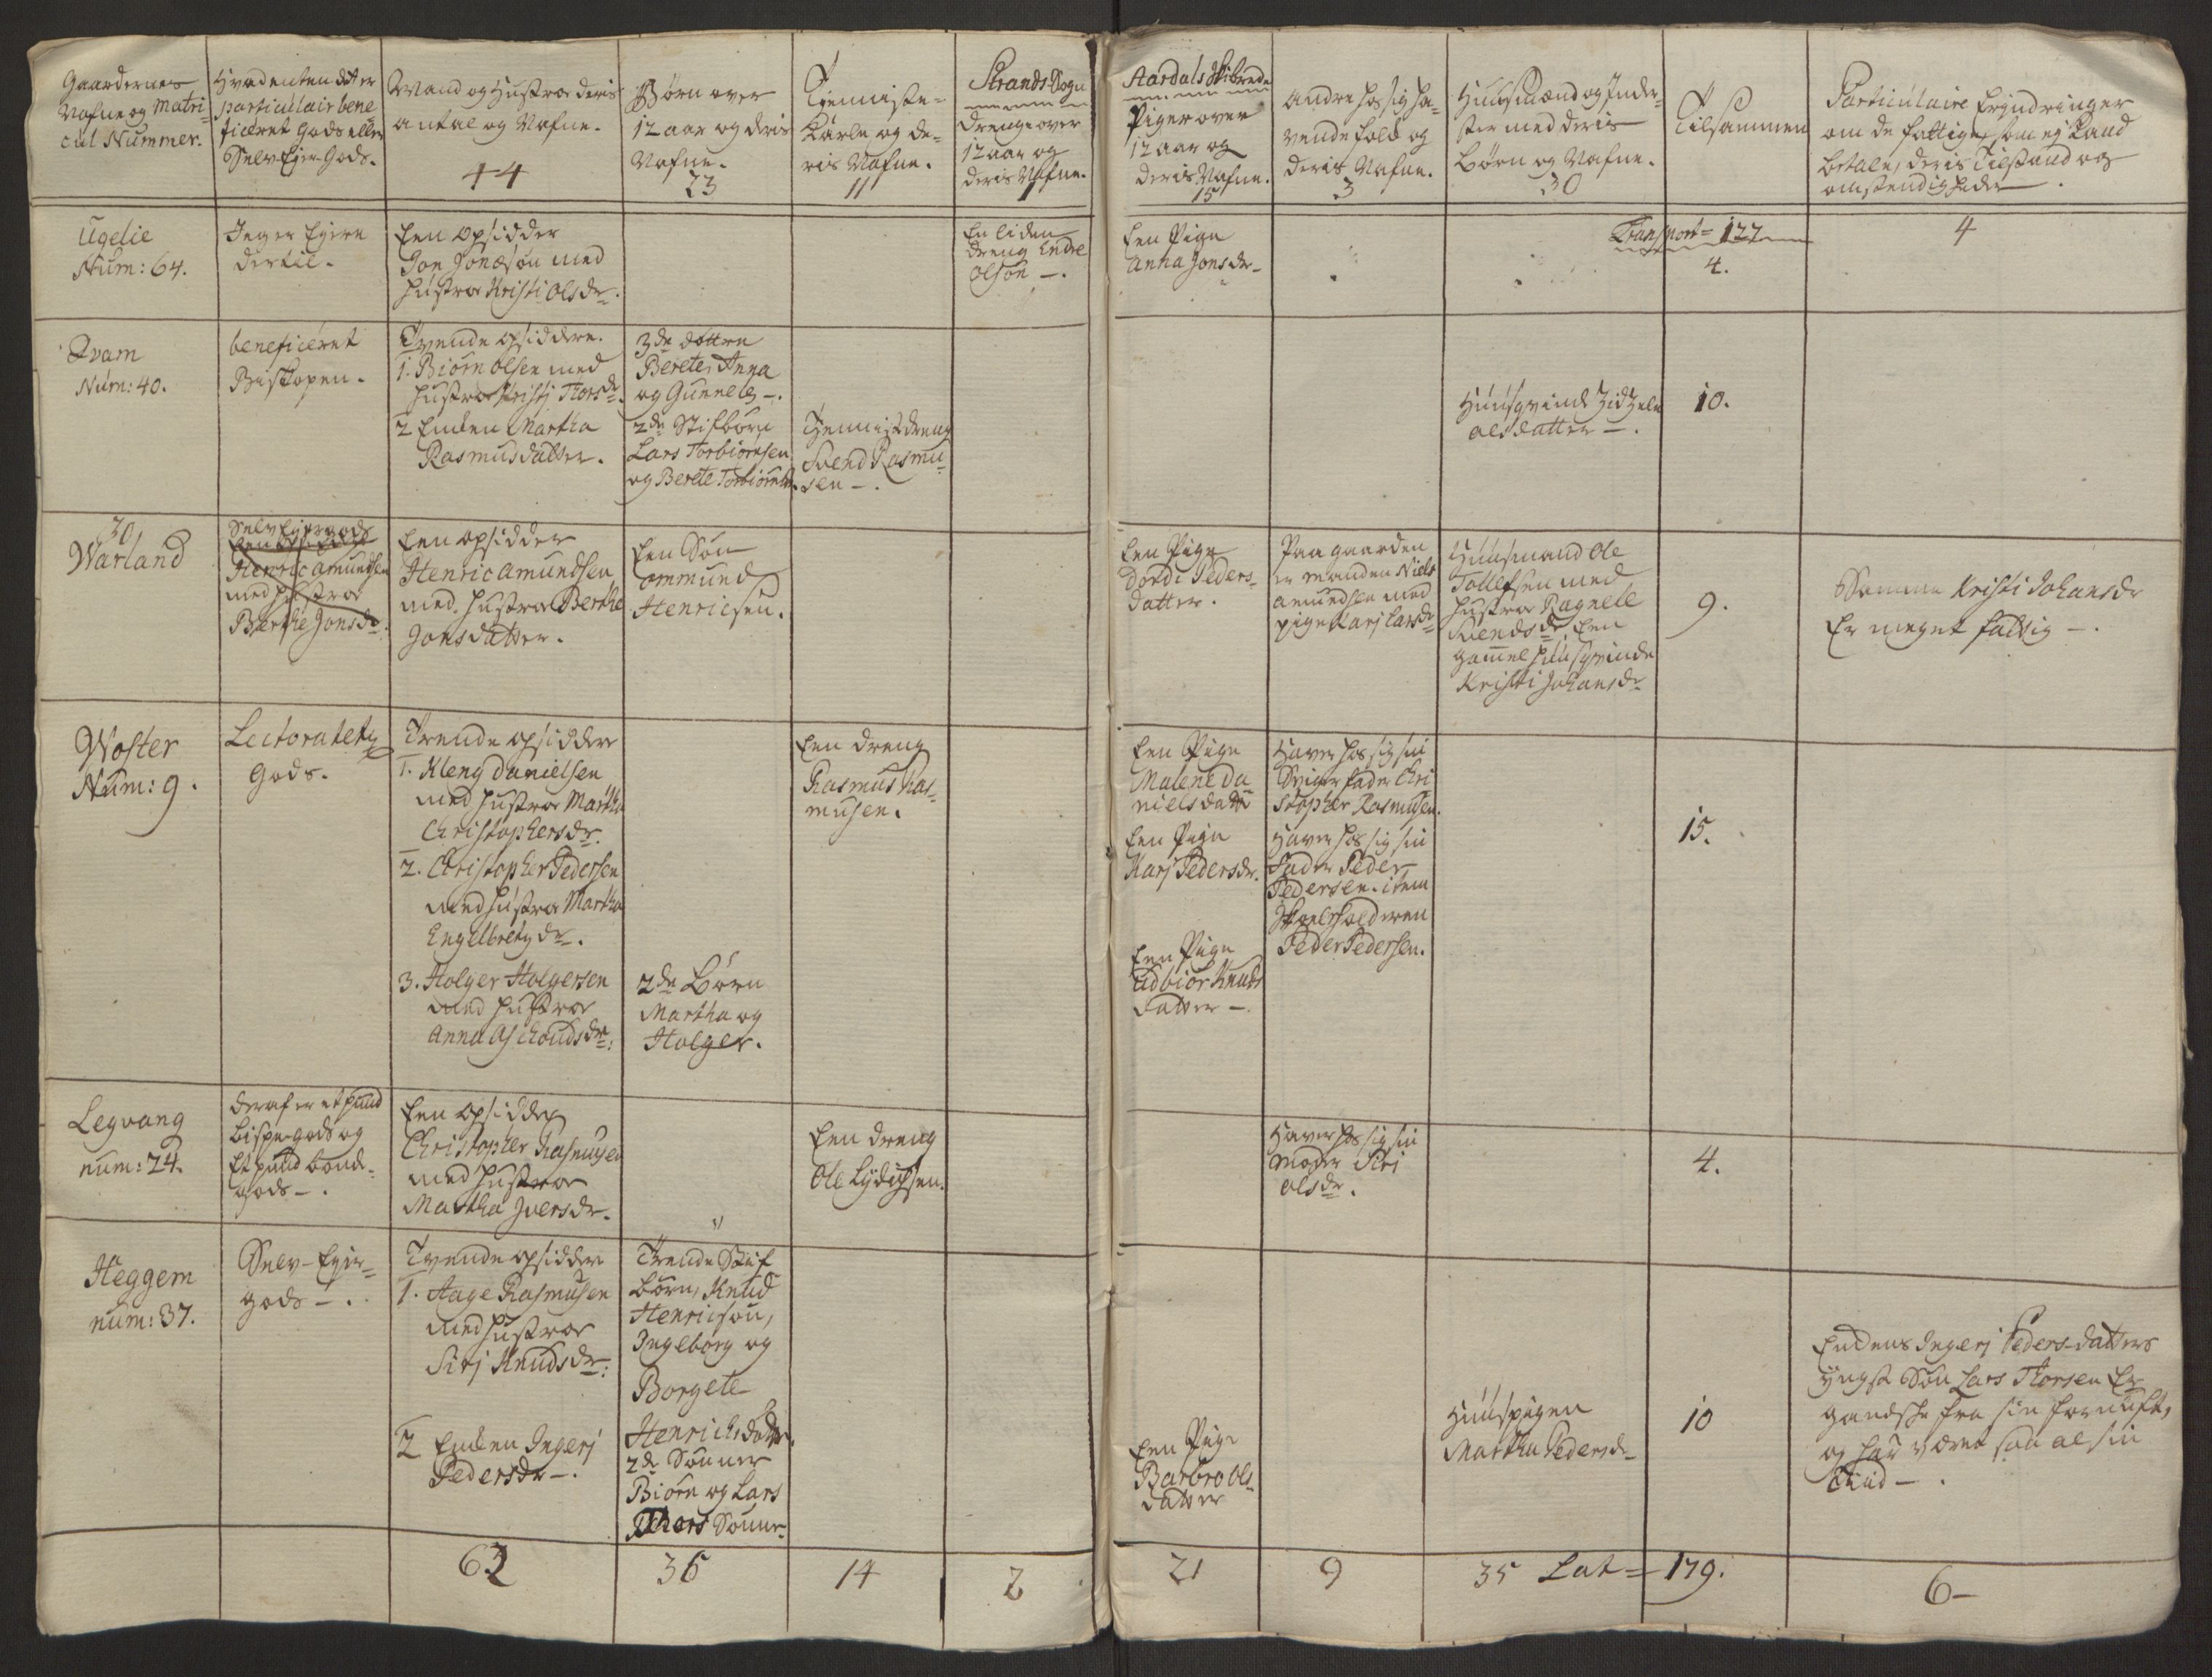 Gaardernes
Nafne og Matri-
cul Nummer.
Hvad enten det er
particulair bene
ficeret Gods eller
Selv Eyer-Gods.
Mand og Hustroe deris
antal og Nafne.
44
Børn over
12 aar og deris
Nafne.
23
Tjenniste-
Karle og de-
ris Nafne.
11
Strands Sogn
Drenge over
12 aar og
deris Nafne.
1
Aardals Skibrede
Piger over
12 aar og
deris Nafne.
15
Andre hos sig ha-
vende folk og
deris Nafne.
3
Huusmænd og Inder-
ster med deris
Børn og Nafne.
30
Tilsammen
Particulaire Erindringer
om de fattige, som ej kand
betale, deris Tilstand og
omstendigheder.
Ugelie
Num: 64.
Inger Eyere
dertil.
Een Opsidder
Jon Jonesøn med
hustroe Kristi Olsdr.
En liden
dreng Endre
Olsøn -.
Een Pige
Anna Jonsdr-
Transport = 127
4.
4
Qvam
Num: 40.
beneficeret
Biskopen.
Tvende opsiddere.
1. Biørn Olsen med
hustroe Kristj Torsdr.
2 Enken Martha
Rasmusdatter.
3de døttre
Berete, Anna
og Gunnele -.
2de Stifbørn
Lars Torbiørnsen
og Berete Torbiørnsdr.
Tjennistdreng
Svend Rasmu-
sen -.
Huusqvind Zidzele
Olsdatter -.
10.
30
Warland
Selv Eyer gods
Een Opsidder
Henric Amundsen
med hustroe
Berthe Jonsdr.
Een opsidder
Henric Amundsen
med hustroe Berthe
Jonsdatter.
Een Søn
Ommund
Henricsen.
Een Pige
Dordi Peders-
datter.
Paa gaarden
er manden Niels
Amundsen med
pige Karj Larsdr
Huusmand Ole
Tollefsen med
hustroe Ragnele
Svendsdr, Een
gammel huusqvinde
Kristi Johansdr
9.
Samme Kristi Johansdr
Er meget fattig -.
Woster
Num: 9.
Lectoratetz
Gods.
Trende opsiddere
1. Kleng Danielsen
med hustroe Martha
Christophersdr.
2. Christopher Pedersen
med hustroe Martha
Engelbretzdr.
3. Holger Holgersen
med hustroe
Anna Aschoudsdr:
2de Børn
Martha og
Holger.
Een dreng
Rasmus Ras-
musen.
Een Pige
Malene Da
nielsdatter
Een Pige
Karj Pedersdr.
Een Pige
Udbiør Knuds
datter -.
Haver hos sig sin
Sviger fader Chri
stopher Rasmusen.
Haver hos sig sin
Fader Peder
Pedersen. item
Skoelholderen
Peder Pedersen.
15.
Legvang
num: 24.
deraf er et pund
bispe-gods og
Et pund bonde-
gods -.
Een opsidder
Christopher Rasmusen
med hustroe
Martha Iversdr.
Een dreng
Ole Lydichsen.
Haver hos sig sin
Moder Siri
Olsdr.
4.
Heggem
num: 37.
Selv-Eyer-
gods -.
Tvende opsiddere
1. Aage Rasmusen
med hustroe
Sirj Knudsdr:
2 Enken Ingerj
Pedersdr -.
Trende Stif
børn, Knud
Henricsøn,
Ingeborg og
Borgete
Henrichsdøtre.
2de Sønner
Biørn og Lars
Thors Sønner.
Een Pige
Barbro Ols-
datter
Huuspigen
Martha Pedersdr
10
Enkens Ingerj Peders-datters
yngste Søn Lars Thorsen Er
gandske fra sin fornuft,
og har været saa al sin
Tiid -.
62
36
14
2
21
9
35 Lat =
179.
6-